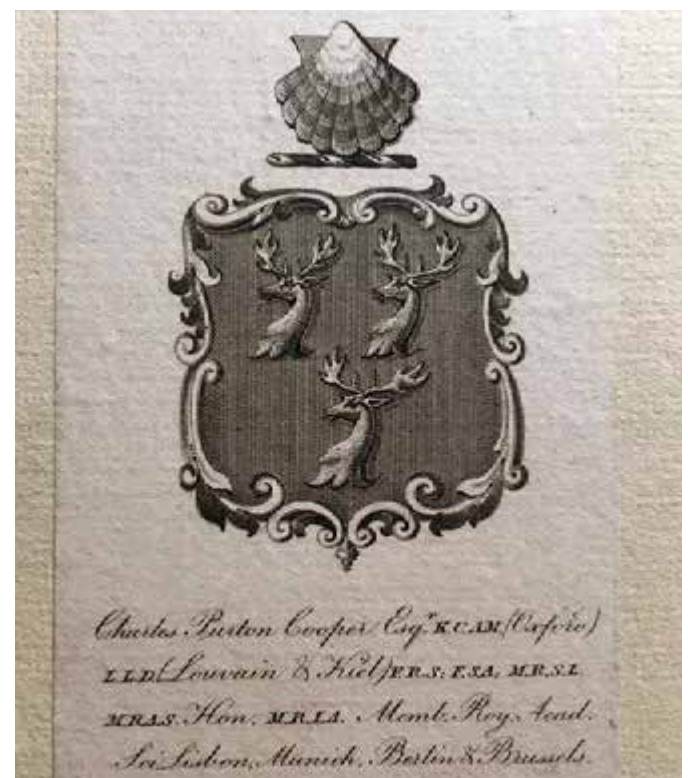 Charles Purton Cooper Esqr. K.C.A.M. (Oxford)
L.L.D. (Louvain & Kiel) F.R.S; F.S.A; M.R.S.L
M.R.A.S. Hon. M.R.I.A. Memb. Roy. Acad.
Sci Lisbon, Munich, Berlin & Brussels.